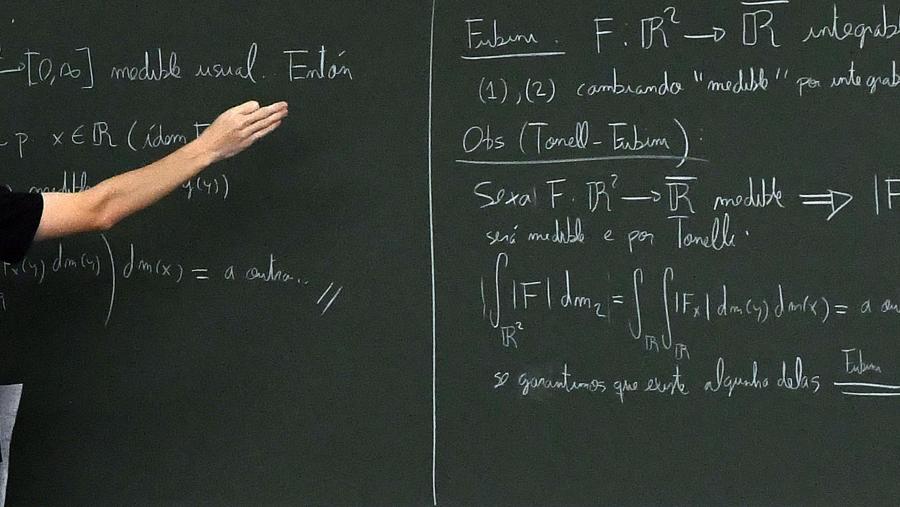 →[0,∞] medible usual. Entón
p x ∈ ℝ (ídem F
medible y(y))
Fx(y) dm(y)) dm(x) = a outra... //
Fubini. F: ℝ² → ℝ̅ integrab
(1), (2) cambiando "medible" por integrab
Obs (Tonell-Fubini):
Sexa F: ℝ² → ℝ̅ medible ⟹ |F
será medible e por Tonelli.
∫ℝ² |F| dm₂ = ∫ℝ ∫ℝ |Fx| dm(y) dm(x) = a ou
se garantimos que existe algunha delas Fubini